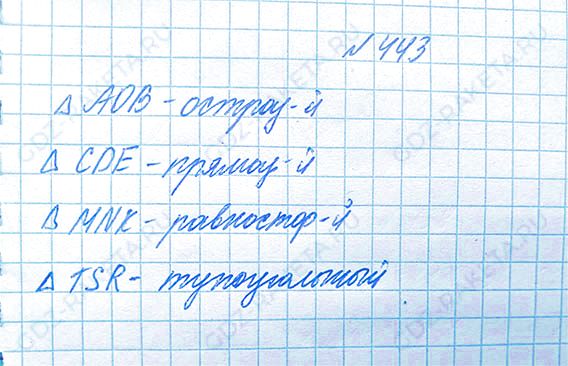 № 443
Δ AOB - остроу-й
Δ CDE - прямоу-й
Δ MNK - равностор-й
Δ TSR - тупоугольный
GDZ-RAKETA.RU